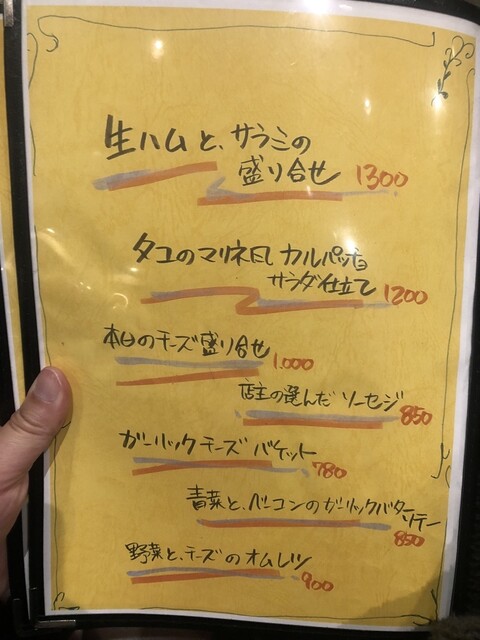 生ハムと、サラミの
盛り合せ 1300
タコのマリネ風 カルパッチョ
サラダ仕立て 1200
本日のチーズ盛り合せ 1.000
店主の選んだ ソーセージ 850
ガーリックチーズバケット 780
青菜と、ベーコンのガーリックバター
ソテー 850
野菜と、チーズのオムレツ 900